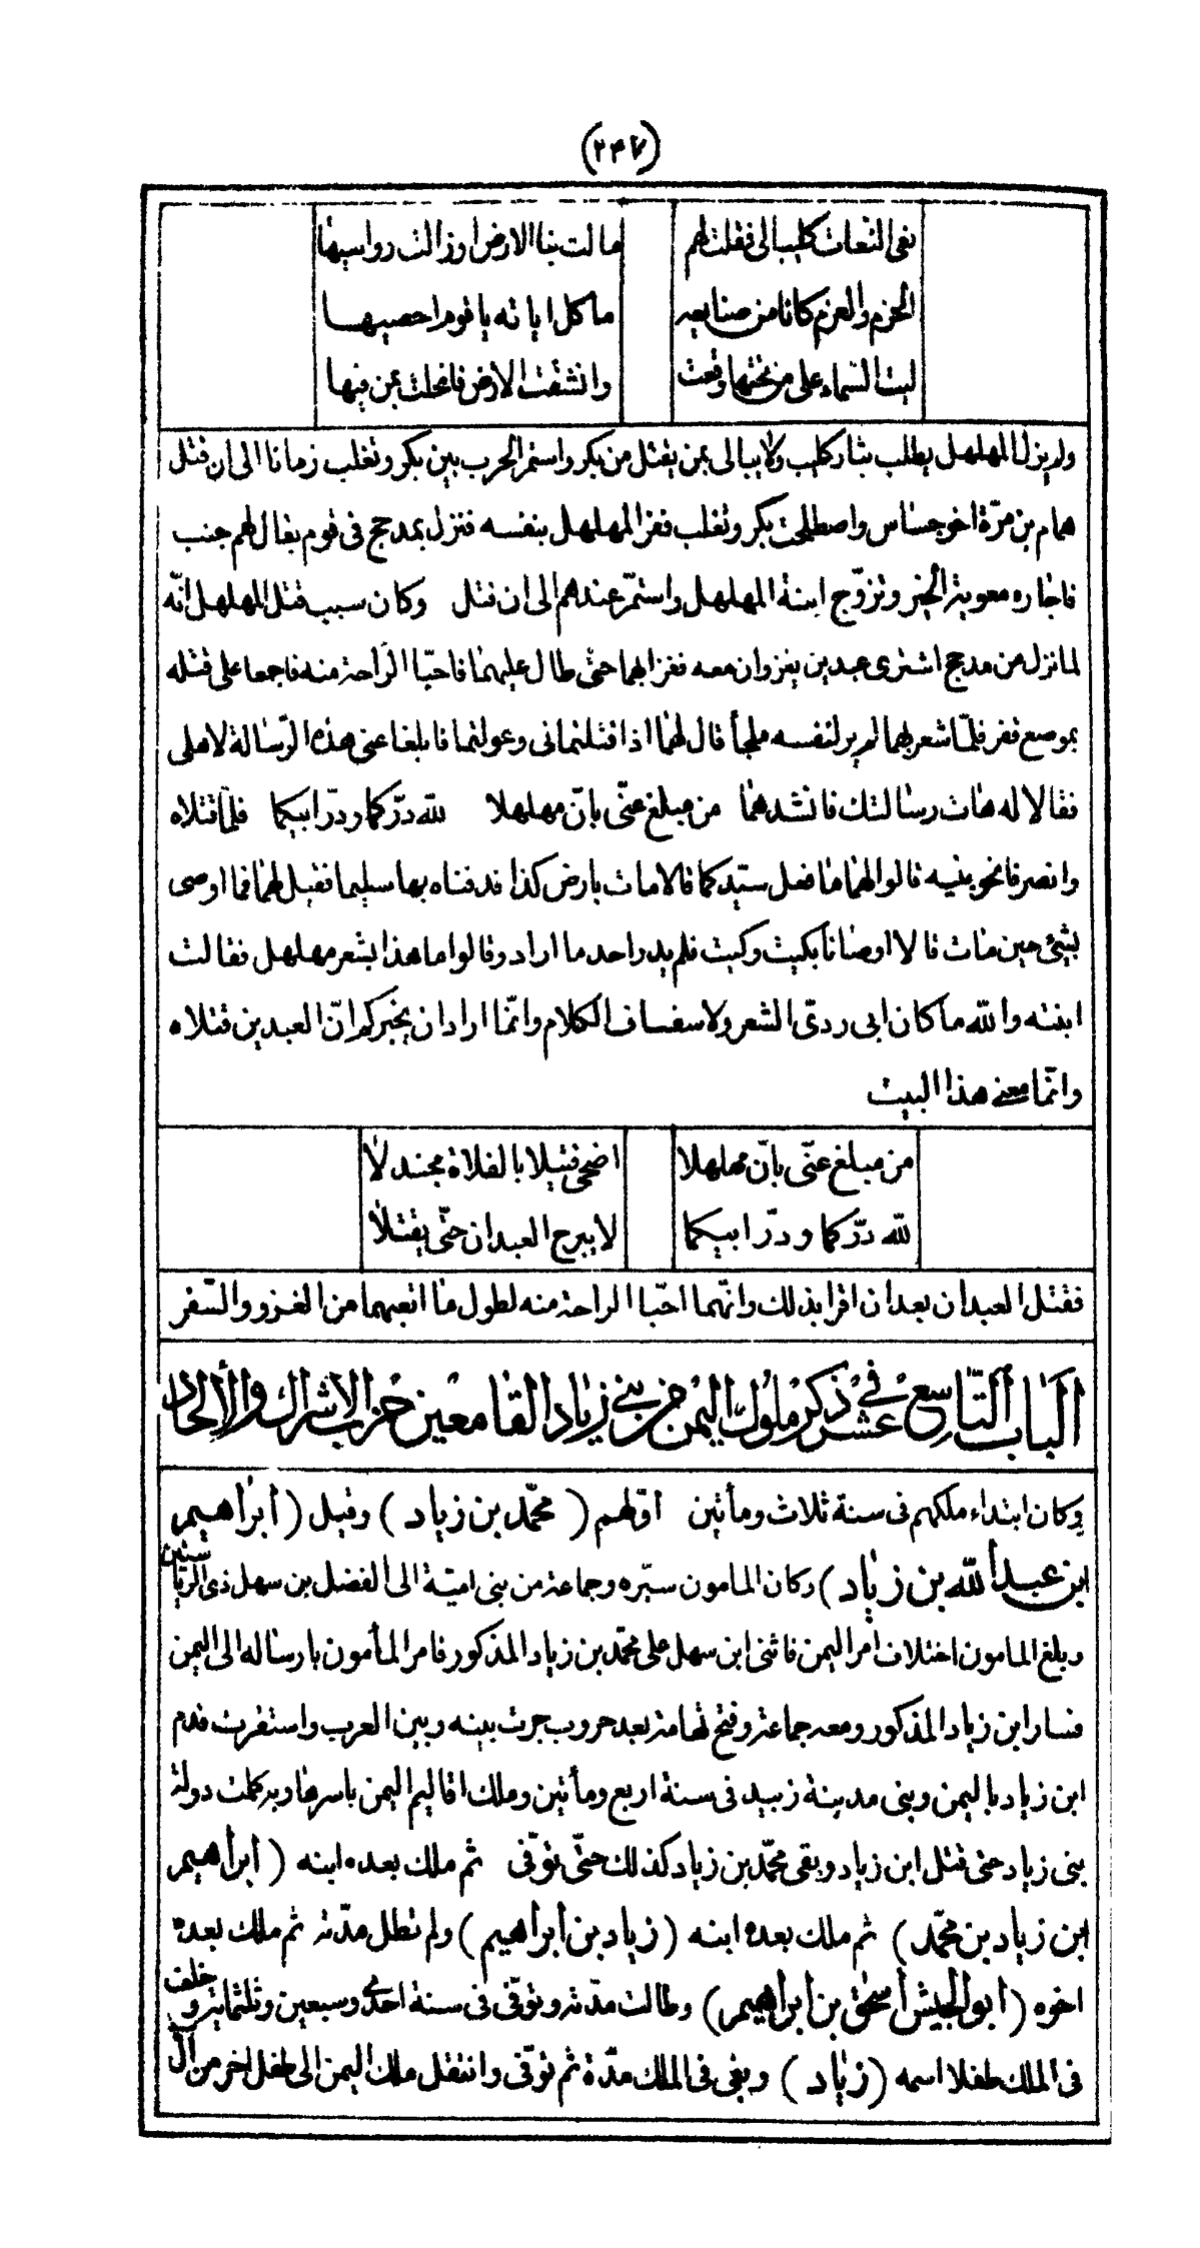 (٢٤٧)
نعى النعات كليبا لى فقلت لهم مالت بنا الارض او زالت رواسيها
الحزم والعزم كانا من صنايعه ما كل اياته يا قوم احصيهـا
ليت السماء على من تحتها وقعت وانشقت الارض فانجلت بمن فيها
ولم يزل المهلهل يطلب بثار كليب ولا يبالى بمن يقتل من بكر واستمر الحرب بين بكر وتغلب زمانا الى ان قتل
همام بن مرّة اخو جساس واصطلحت بكر وتغلب ففر المهلهل بنفسه فنزل بمدحج فى قوم يقال لهم جنب
فاجاره معوية الخير وتزوّج ابنة المهلهل واستمرّ عندهم الى ان قتل وكان سبب قتل المهلهل انّه
لما نزل من مدحج اشترى عبدين يغزوان معه فغزا بهما حتى طال عليهما فاحبّا الرّاحة منه فاجمعا على قتله
بموضع قفر فلمّا شعر بهما لم ير لنفسه ملجأ قال لهما اذا قتلتمانى وعولتما فابلغا عنى هذه الرّسالة لاهلى
فقالا له هات رسالتك فانشدهما من مبلغ عنّى بانّ مهلهلا للّه درّكما ودرّ ابيكما فلمّا قتلاه
وانصرفا نحو بنيه قالوا لهما ما فعل سيّدكما قالا مات بارض كذا فدفناه بها سليما فقيل لهما فما اوصى
بشئ حين مات قالا اوصانا بكيت وكيت فلم يدر احد ما اراد وقالوا ما هذا بشعر مهلهل فقالت
ابنته والله ما كان ابى ردىّ الشعر ولا سفساف الكلام وانّما اراد ان يخبركم انّ العبدين قتلاه
وانّما معنى هذا البيت
من مبلغ عنّى بانّ مهلهلا اضحى قتيلا بالفلاة مجندلا
للّه درّكما ودرّ ابيكما لا يبرح العبدان حتّى يقتلا
فقتل العبدان بعد ان اقرا بذلك وانّهما احبّا الراحة منه لطول ما اتعبهما من الغزو والسّفر
الباب التّاسع عشر فى ذكر ملوك اليمن من بنى زياد القامعين حزب الاشراك والالحاد
وكان ابتداء ملكهم فى سنة ثلاث ومأتين اوّلهم (محمّد بن زياد) وقيل (ابراهيم
ابن عبد الله بن زياد) وكان المامون سيّره وجماعة من بنى اميّة الى الفضل بن سهل ذى الرياستين
وبلغ المامون اختلاف امر اليمن فاثنى ابن سهل على محمّد بن زياد المذكور فامر المأمون بارساله الى اليمن
فسار ابن زياد المذكور ومعه جماعة وفتح تهامة بعد حروب جرت بينه وبين العرب واستقرت قدم
ابن زياد باليمن وبنى مدينة زبيد فى سنة اربع ومأتين وملك اقاليم اليمن باسرها وبه كملت دولة
بنى زياد حتى قتل ابن زياد وبقى محمّد بن زياد كذلك حتّى توفّى ثم ملك بعده ابنه (ابراهيم
ابن زياد بن محمّد) ثم ملك بعده ابنه (زياد بن ابراهيم) ولم تطل مدّته ثم ملك بعده
اخوه (ابو الجيش اسحق بن ابراهيم) وطالت مدّته وتوفّى فى سنة احدى وسبعين وثلثمائة وخلف
فى الملك طفلا اسمه (زياد) وبقى فى الملك مدّة ثم توفّى وانتقل ملك اليمن الى طفل اخر من ال